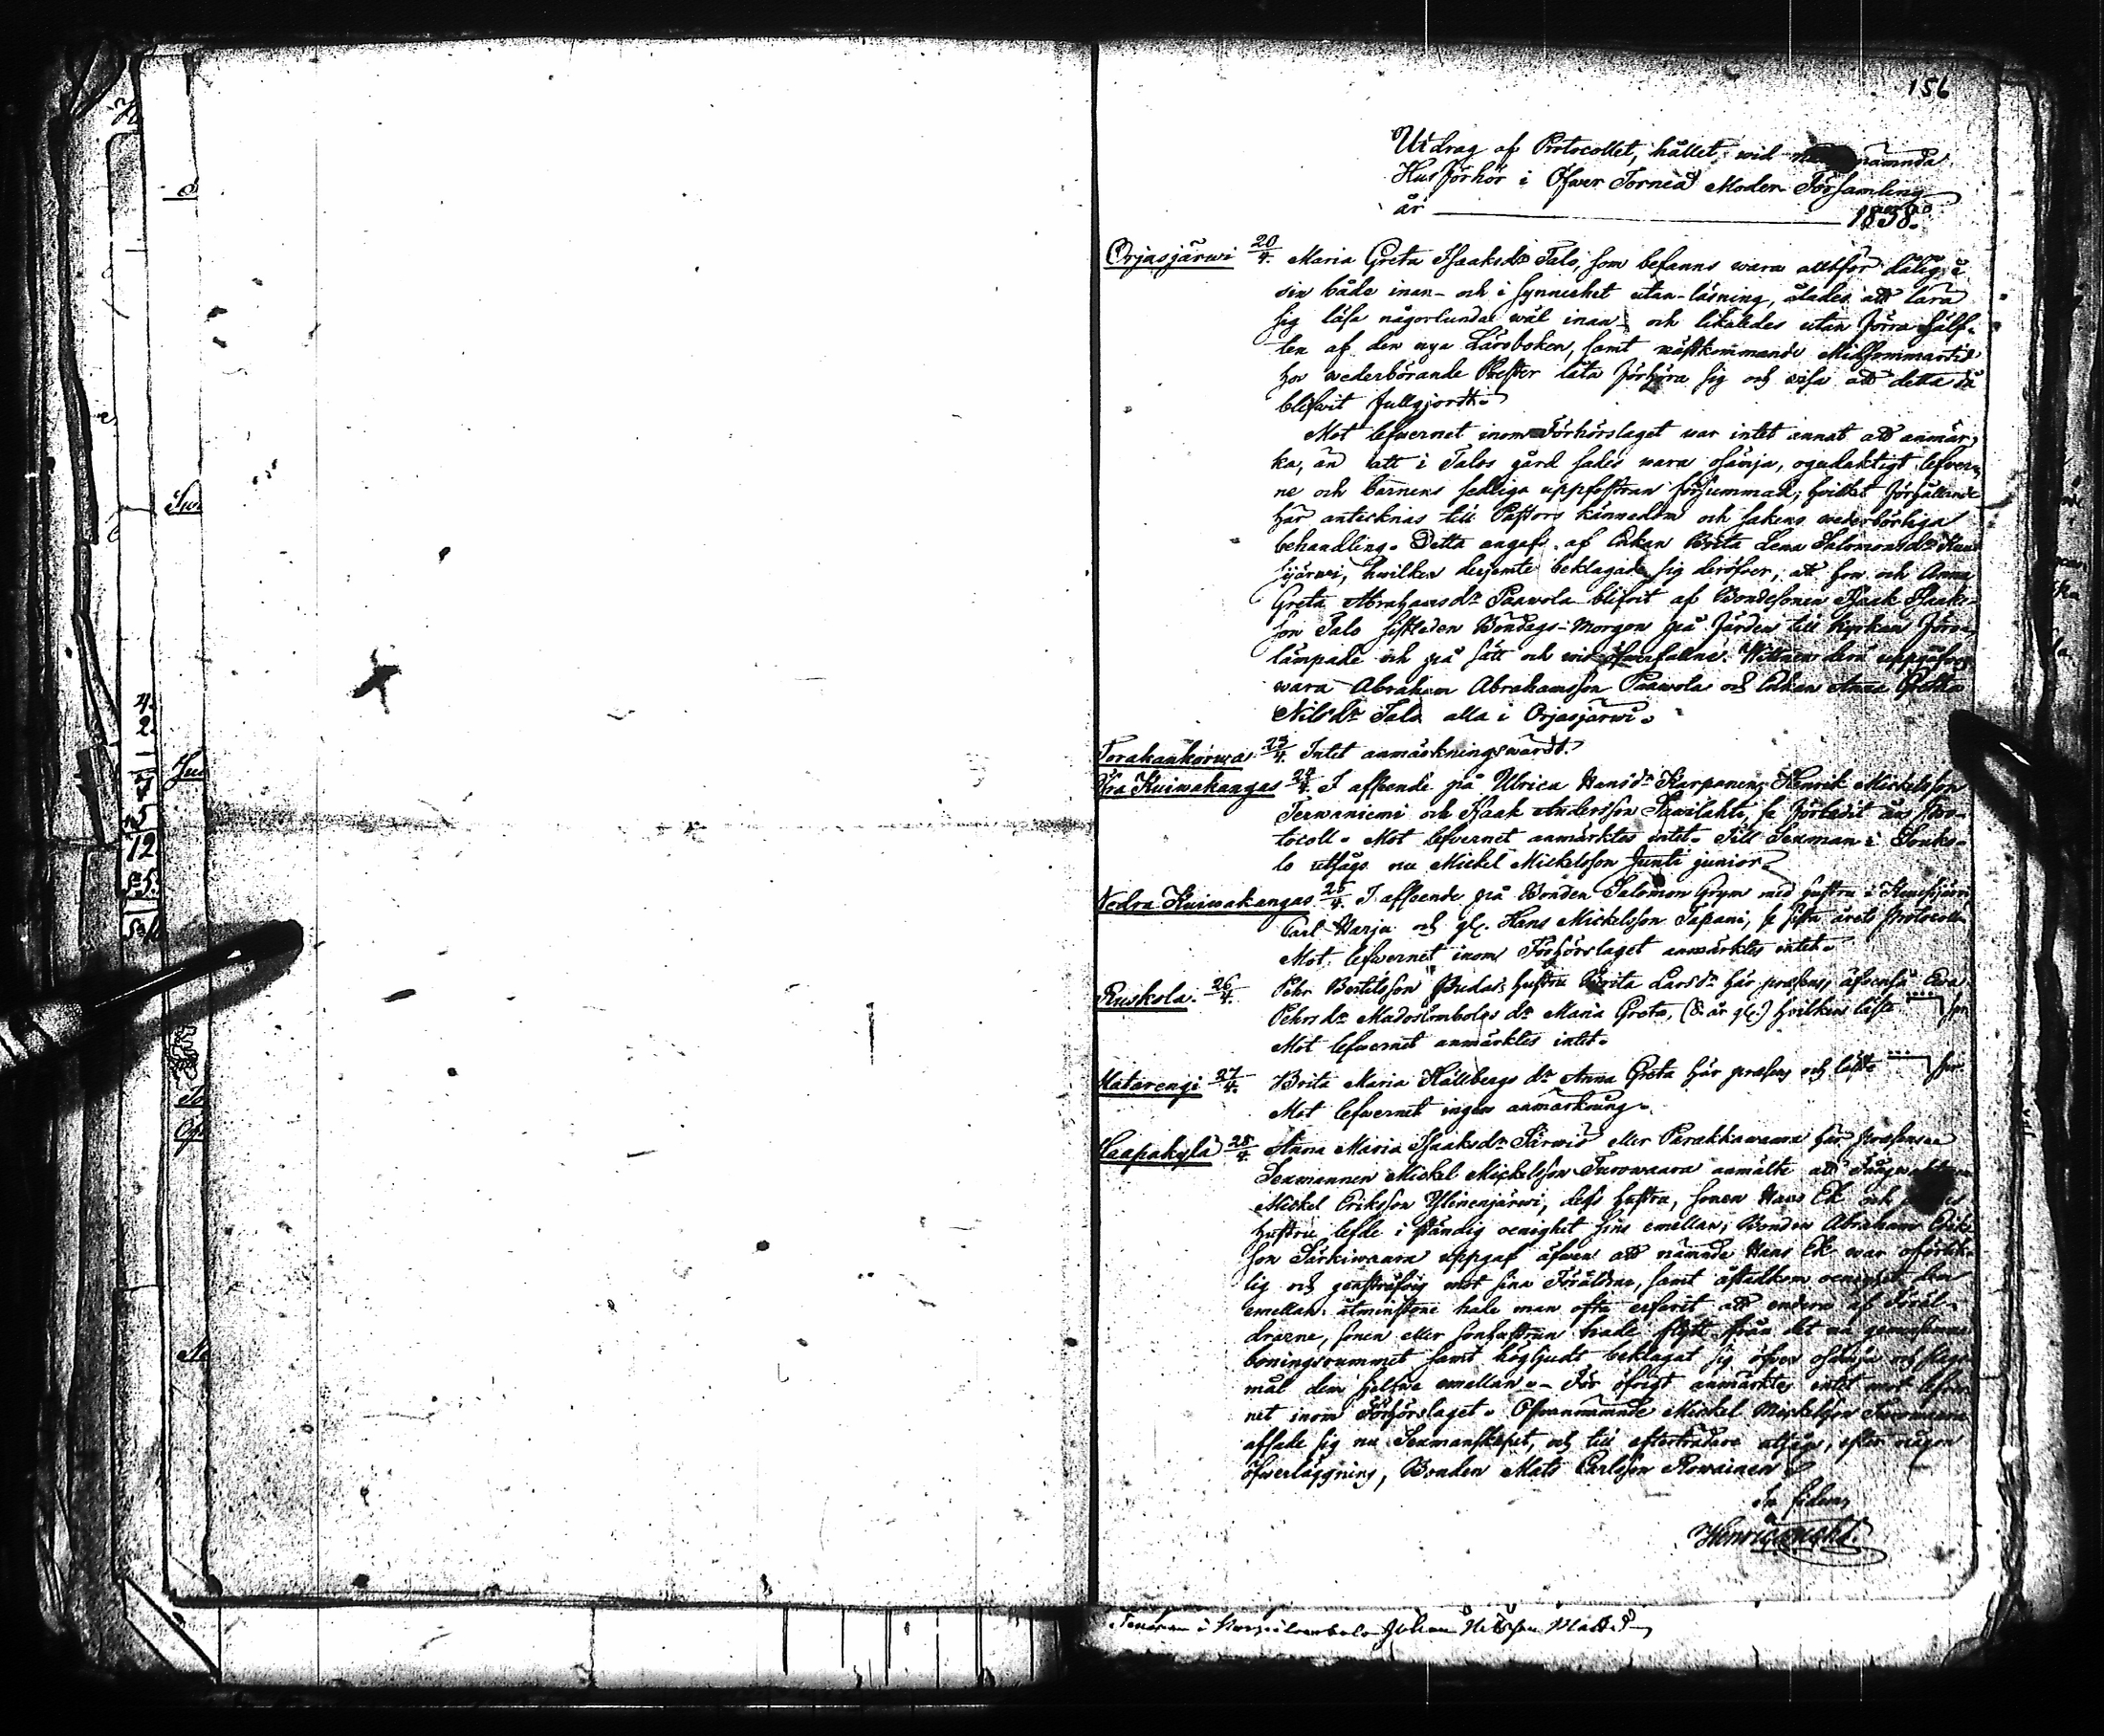 156
Utdrag af Protocollet, hållet wid nämnda
Husförhör i Öfwer Torneå Moder Församling
år 1838.
Orjasjärwi 20/4. Maria Greta Isaksdr Talo, som befanns wara alltför dålig i
sin både inan- och i synnerhet utan-läsning, ålades att lära
sig läsa någorlunda wäl inan- och likaledes utan förra hälf-
ten af den nya Läroboken, samt nästkommande Midsommarstid
hos wederbörande Prester låta förhöra sig och wisa att detta då
blifwit fullgjordt.
Mot lefwernet inom Förhörslaget war intet annat att anmär-
ka, än att i Talos gård sades wara osämja, ogudaktigt lefwer-
ne och barnens sedliga uppfostran försummad; hwilket förhållande
här antecknas till Pastors kännedom och sakens wederbörliga
behandling. Detta angafs af Enkan Brita Lena Salomonsdr
hwilken desjemte beklagade sig deröfwer, att hon och Anna
Greta Abrahamsdr Paawola blifwit af Bondesonen Isaak Isaaks-
son Talo sistleden Böndags-Morgon på färden till kyrkan föro-
lämpade och på sätt och wis öfwerfallne. Wittnen derå uppgåfwos
wara Abraham Abrahamsson Paawola och Enkan Anna Greta
Nilsdr Talo alla i Orjasjärwi.
Torakankorwa 23/4. Intet anmärkningswärdt.
Kuiwakangas 24/4. I afseende på Ulrica Hansdr Karpanen, Henrik Mickelsson
Terwaniemi och Isaak Andersson Sawilahti, se förledit års Pro-
tocoll. Mot lefwernet anmärktes intet. Till Sexman i
utsågs nu Mickel Mickelsson Junti junior.
Nedra Kuiwakangas 25/4. I afseende på Bonden Salomon Grym med hustru i
Carl Harju och Hans Mickelsson Tapani, se sista årets Protocoll.
Mot lefwernet inom Förhörslaget anmärktes intet.
Ruskola. 26/4. Pehr Bertilsson Hustru Brita Larsdr här præsens, äfwenså Ewa
Pehrsdr dr Maria Greta, (8 år gl.) hwilken läste
Mot lefwernet anmärktes intet.
Matarengi 27/4. Brita Maria Hällbergs dr Anna Greta här præsens och läste
Mot lefwernet ingen anmärkning.
Haapakylä 28/4. Anna Maria Isaaksdr Särwis eller Parakkawaara här præsens
Sexmannen Mickel Mickelsson Turowaara anmälte att
Mickel Eriksson Ylinenjärwi, dess hustru, sonen Hans Ek och
hustru lefde i ständig oenighet sins emellan; Bonden Abraham Eriks-
son Särkiwaara uppgaf äfwen att nämnde Hans Ek war oförlik-
lig och gensträfwig mot sina Föräldrar, samt åstadkom oenighet dem
emellan: åtminstone hade man ofta erfarit att endera af Föräl-
drarne, sonen eller sonhustrun hade flytt från det nu gemensamma
boningsrummet samt högljudt beklagat sig öfwer osämja och slags-
mål dem sjelfwe emellan. För öfrigt anmärktes intet mot lefwer-
net inom Förhörslaget. Ofwannämnde Mickel Mickelsson Turowaara
afsade sig nu Sexmanskapet, och till efterträdare utsågs, efter någon
öfwerläggning, Bonden Mats Carlsson Rowainen.
In fidem